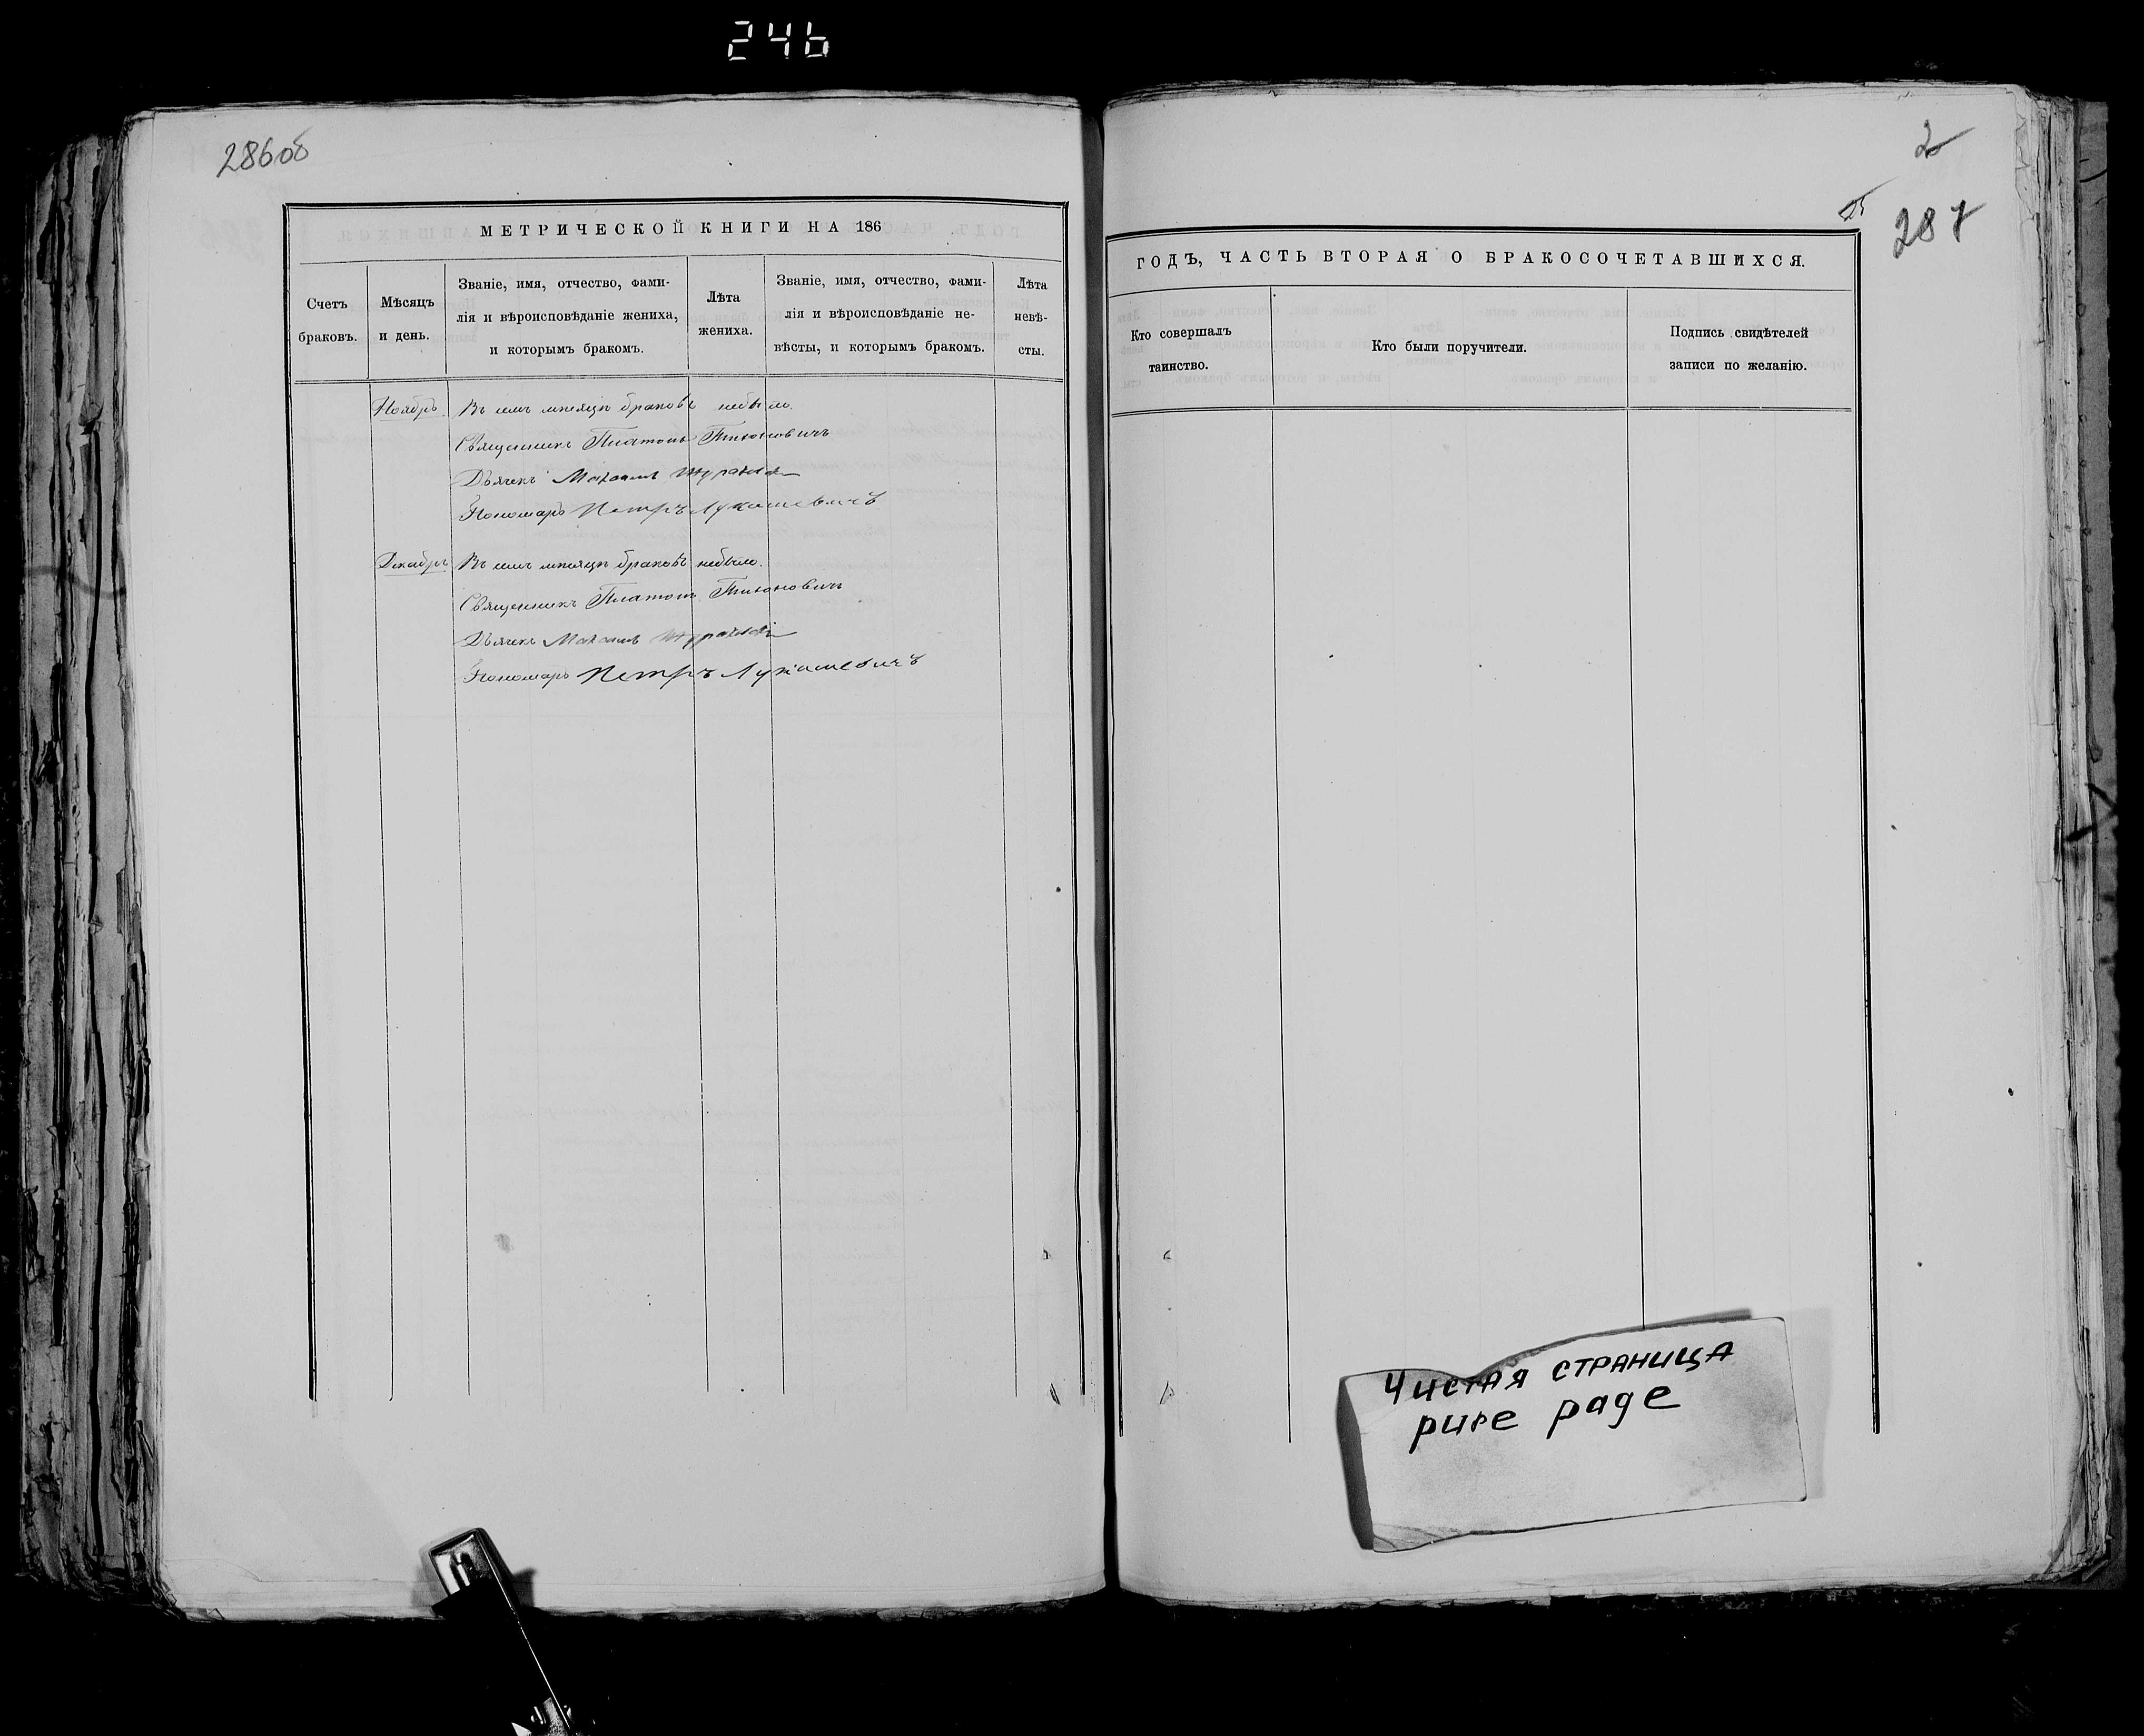 246
286об
МЕТРИЧЕСКОЙ КНИГИ НА 186
Счетъ
браковъ.
Мѣсяцъ
и день.
Званіе, имя, отчество, фами-
лія и вѣроисповѣданіе жениха,
и которымъ бракомъ.
Лѣта
жениха.
Званіе, имя, отчество, фами-
лія и вѣроисповѣданіе не-
вѣсты, и которымъ бракомъ.
Лѣта
невѣ-
сты.
Ноябрь Въ семъ мѣсяцѣ браковъ небыло.
Священникъ Платонъ Тихоновичъ
Дьячекъ Михаилъ
Пономарь Петръ Лукашевичъ
Декабрь Въ семъ мѣсяцѣ браковъ небыло.
Священникъ Платонъ Тихоновичъ
Дьячекъ Михаилъ
Пономарь Петръ Лукашевичъ
2
287
ГОДЪ, ЧАСТЬ ВТОРАЯ О БРАКОСОЧЕТАВШИХСЯ.
Кто совершалъ
таинство.
Кто были поручители.
Подпись свидѣтелей
записи по желанію.
Чистая страница
pure page